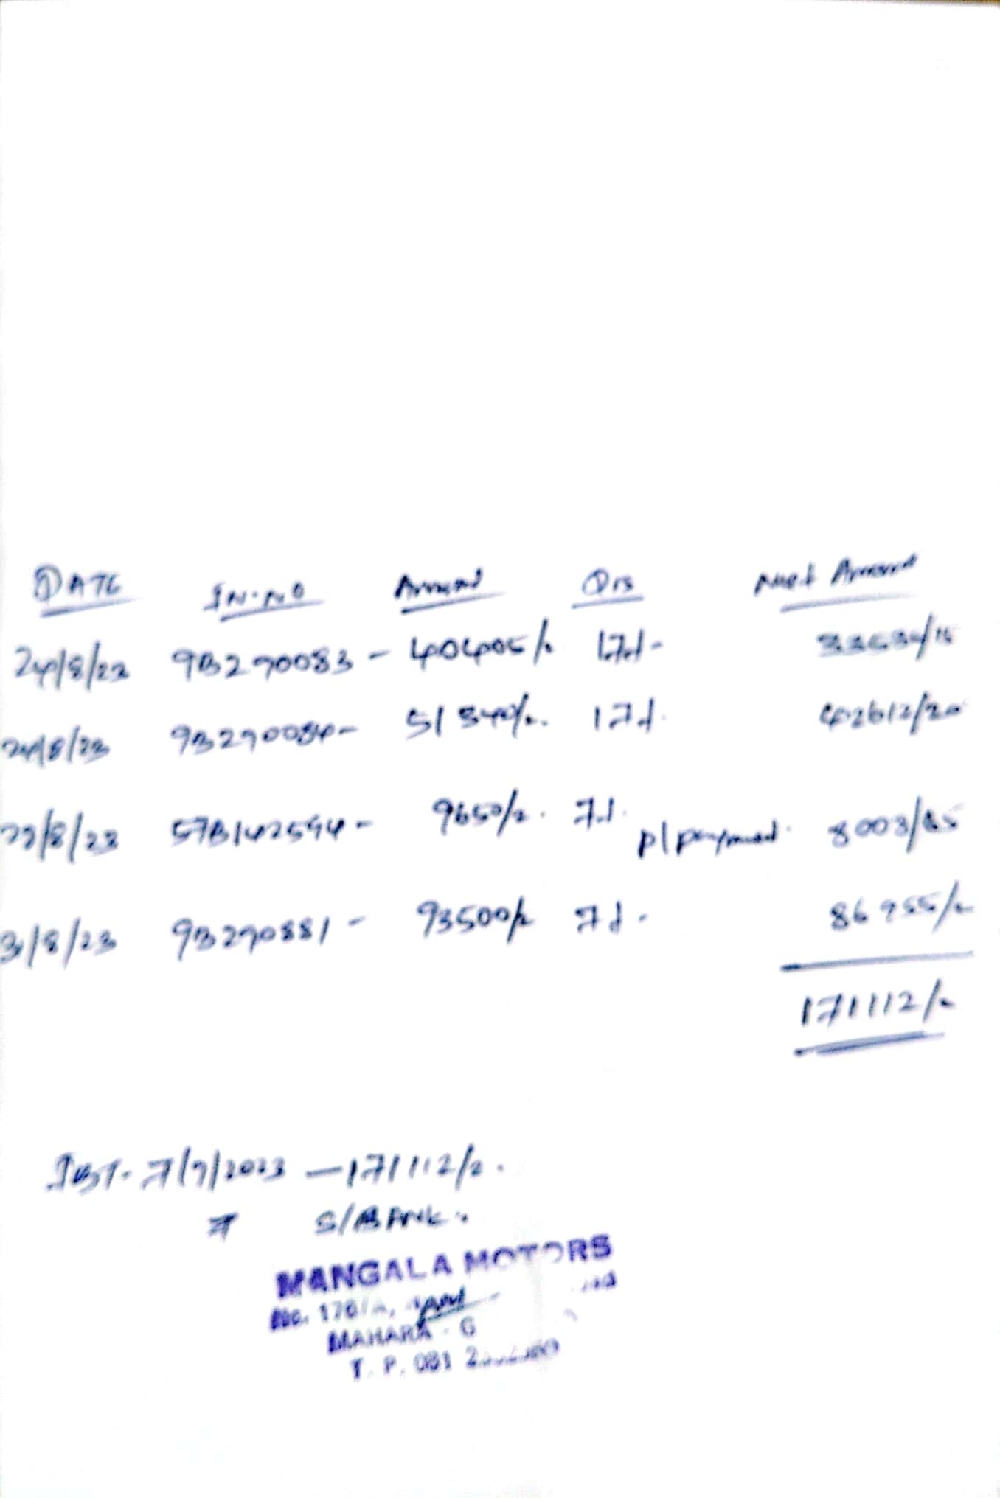 DATE IN.NO Amount Dis Net Amount
24/8/23 9B290083 - 40405/- 17%- 33536/15
24/8/23 9B290084- 51340/-. 17%. 42612/20
57B142594- 9650/-. 7%. p/payment 8003/85
31/8/23 9B290881 - 93500/- 7% - 86955/-
171112/-
7/9/2023 - 171112/-.
S/BANK.
MANGALA MOTORS
No. 176/A,
MAHARA - G
T. P. 081